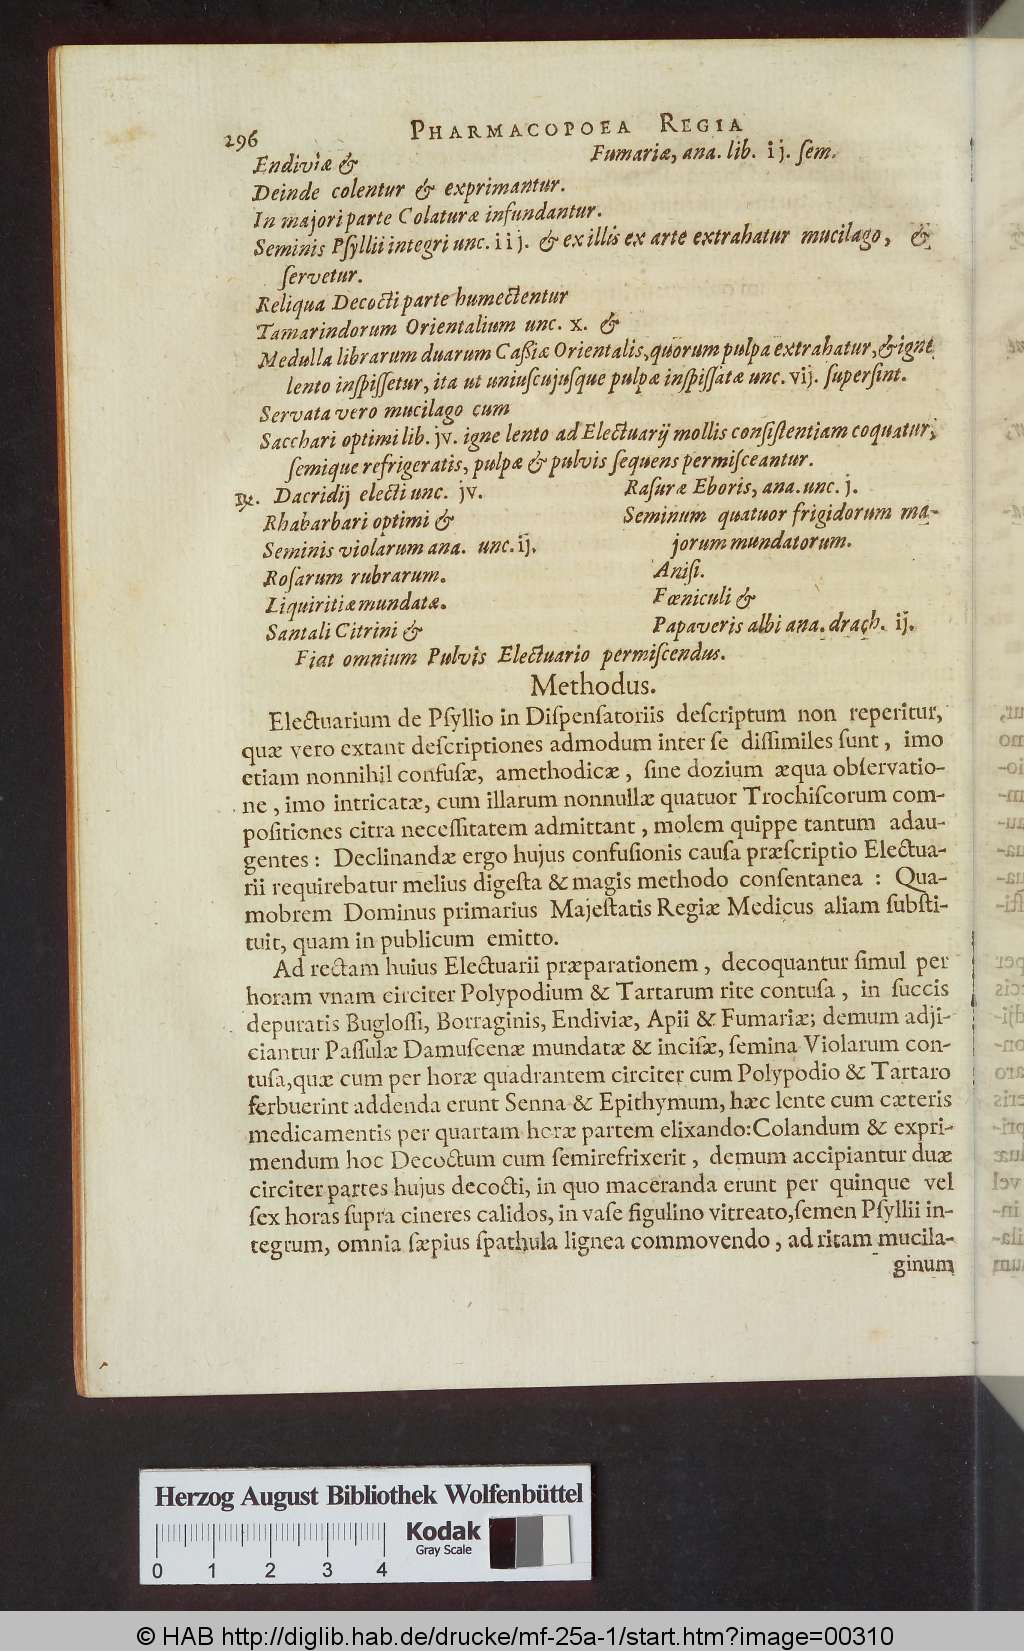 296 PHARMACOPOEA REGIA
Endiviæ & Fumariæ, ana. lib. ij. ſem.
Deinde colentur & exprimantur.
In majori parte Colaturæ infundantur.
Seminis Pſyllii integri unc. iij. & ex illis ex arte extrahatur mucilago, &
ſervetur.
Reliqua Decocti parte humectentur
Tamarindorum Orientalium unc. x. &
Medulla librarum duarum Caſſiæ Orientalis, quorum pulpa extrahatur, & igne
lento inſpiſſetur, ita ut uniuſcujuſque pulpæ inſpiſſatæ unc. vij. ſuperſint.
Servata vero mucilago cum
Sacchari optimi lib. jv. igne lento ad Electuarij mollis conſiſtentiam coquatur,
ſemique refrigeratis, pulpæ & pulvis ſequens permiſceantur.
℞. Dacridij electi unc. jv. Raſuræ Eboris, ana. unc. j.
Rhabarbari optimi & Seminum quatuor frigidorum ma-
Seminis violarum ana. unc. ij. jorum mundatorum.
Roſarum rubrarum. Aniſi.
Liquiritiæ mundatæ. Fœniculi &
Santali Citrini & Papaveris albi ana. drach. ij.
Fiat omnium Pulvis Electuario permiſcendus.
Methodus.
Electuarium de Pſyllio in Diſpenſatoriis deſcriptum non reperitur,
quæ vero extant deſcriptiones admodum inter ſe diſſimiles ſunt, imo
etiam nonnihil confuſæ, amethodicæ, ſine dozium æqua obſervatio-
ne, imo intricatæ, cum illarum nonnullæ quatuor Trochiſcorum com-
poſitiones citra neceſſitatem admittant, molem quippe tantum adau-
gentes: Declinandæ ergo hujus confuſionis cauſa præſcriptio Electua-
rii requirebatur melius digeſta & magis methodo conſentanea : Qua-
mobrem Dominus primarius Majeſtatis Regiæ Medicus aliam ſubſti-
tuit, quam in publicum emitto.
Ad rectam huius Electuarii præparationem, decoquantur ſimul per
horam vnam circiter Polypodium & Tartarum rite contuſa, in ſuccis
depuratis Bugloſſi, Borraginis, Endiviæ, Apii & Fumariæ; demum adji-
ciantur Paſſulæ Damuſcenæ mundatæ & inciſæ, ſemina Violarum con-
tuſa, quæ cum per horæ quadrantem circiter cum Polypodio & Tartaro
ferbuerint addenda erunt Senna & Epithymum, hæc lente cum cæteris
medicamentis per quartam horæ partem elixando: Colandum & expri-
mendum hoc Decoctum cum ſemirefrixerit, demum accipiantur duæ
circiter partes hujus decocti, in quo maceranda erunt per quinque vel
ſex horas ſupra cineres calidos, in vaſe figulino vitreato, ſemen Pſyllii in-
tegrum, omnia ſæpius ſpathula lignea commovendo, ad ritam mucila-
ginum
Herzog August Bibliothek Wolfenbüttel
Kodak
Gray Scale
0 1 2 3 4
© HAB http://diglib.hab.de/drucke/mf-25a-1/start.htm?image=00310